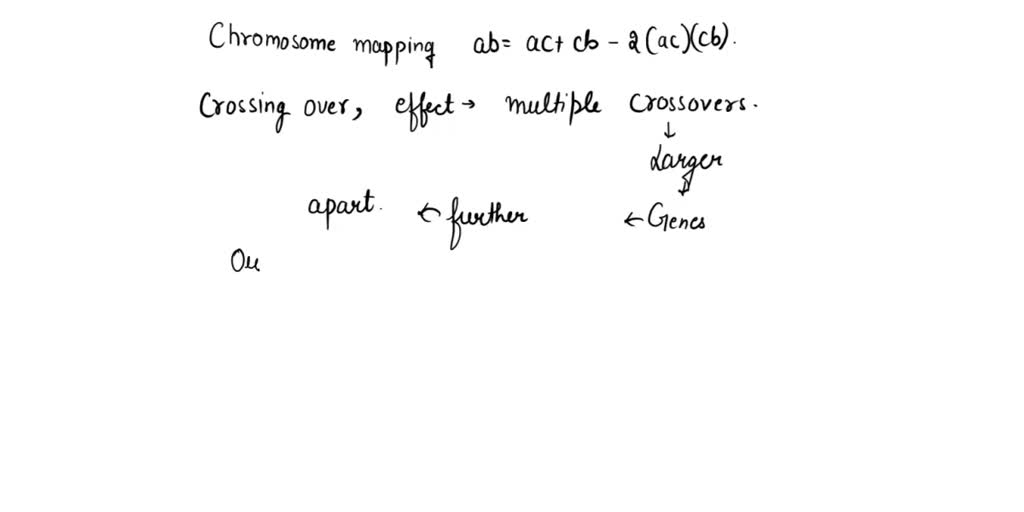 Chromosome mapping ab = ac + cb - 2(ac)(cb).
Crossing over, effect → multiple crossovers.
↓
Larger
↓
apart. ← further ← Genes
Ou